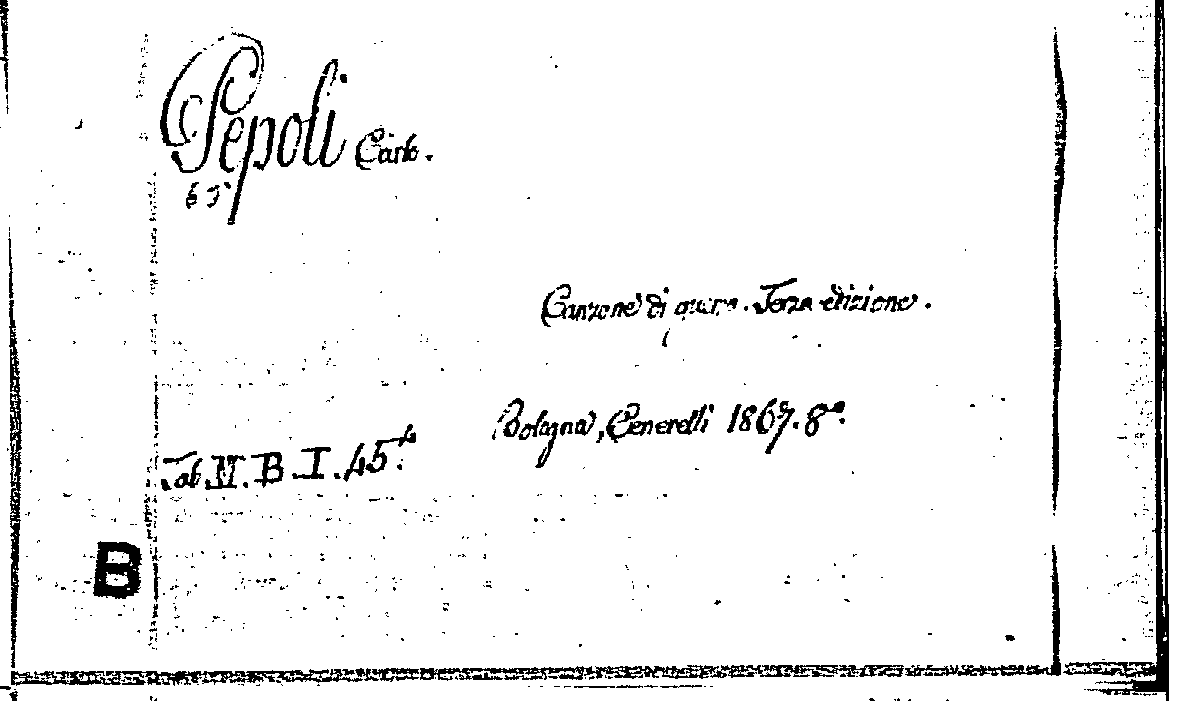 Pepoli Carlo.
Canzone di guerra. Terza edizione.
Bologna, Cenerelli 1867. 8°.
Tab. N. B. I. 45.
B